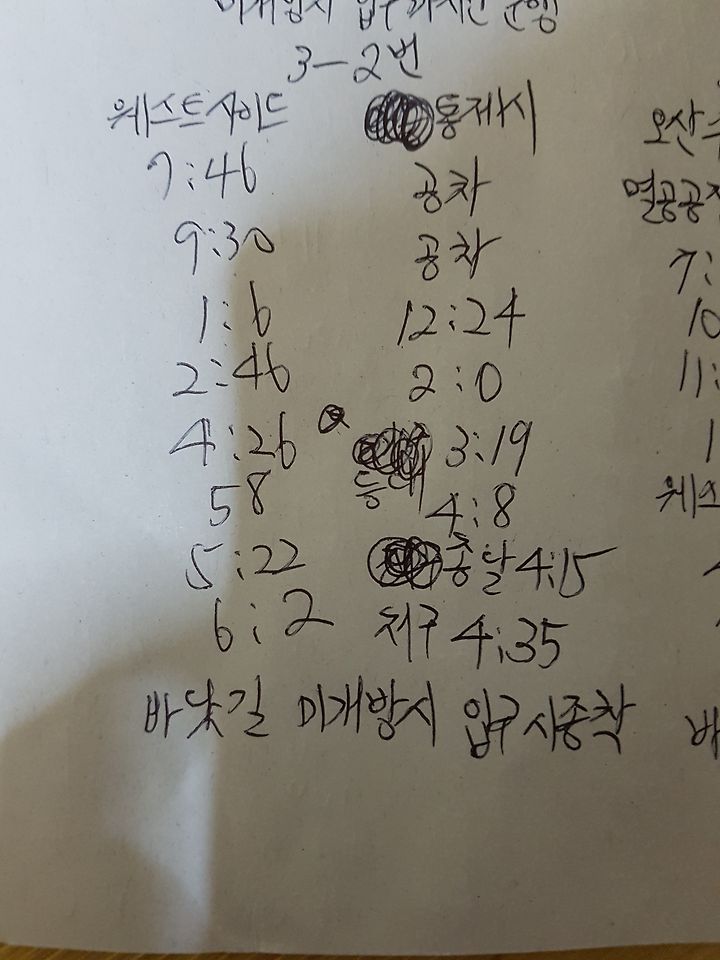 미개방시 입구까지만 운행
3-2번
웨스트사이드 통제시
7:46 공차
9:30 공차
1:6 12:24
2:46 2:0
4:26 3:19
58 4:8
5:22 종달 4:15
6:2 차구 4:35
바닷길 미개방시 입구시종착
오산
멸공공
7:
10
11:
1
웨스
바